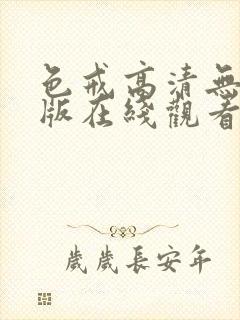 色戒高清無
版在綫觀看
歲歲長安年